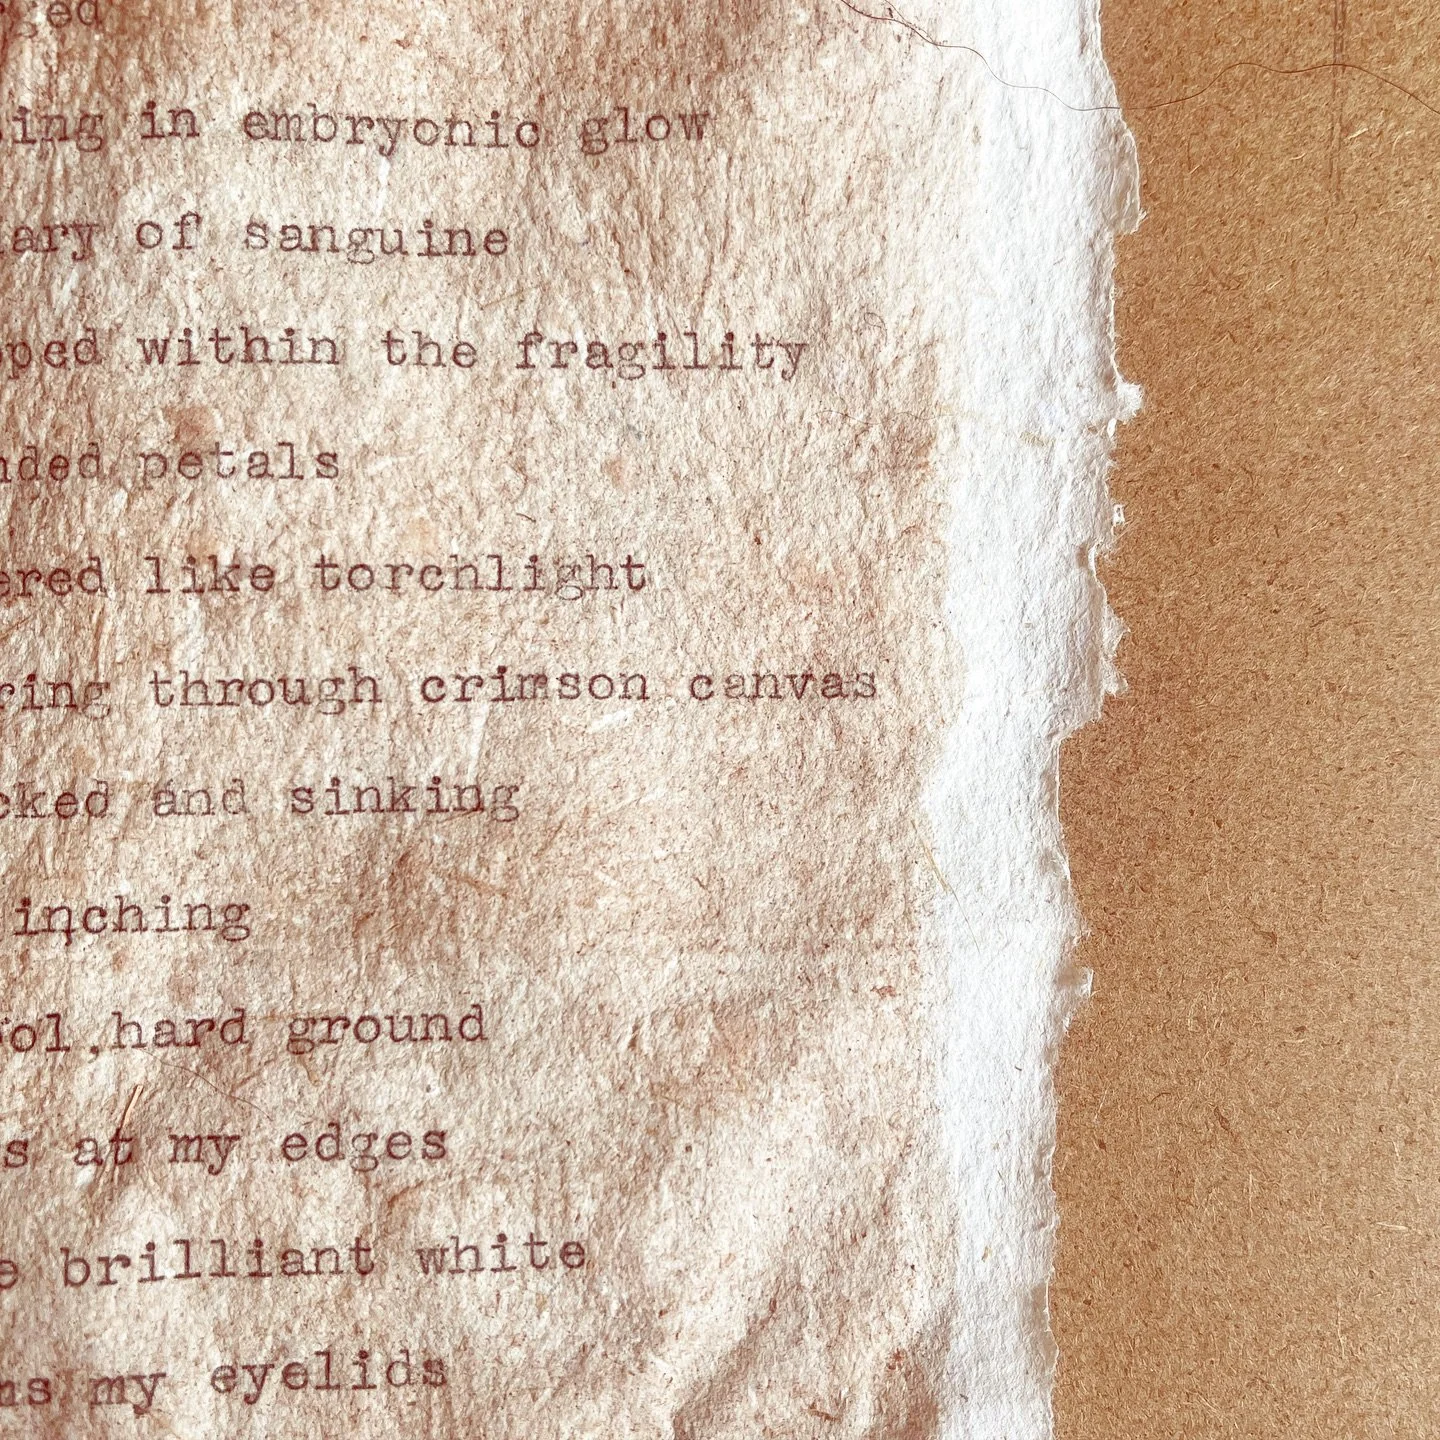 ged
ing in embryonic glow
ary of sanguine
pped within the fragility
nded petals
ered like torchlight
ring through crimson canvas
cked and sinking
inching
ool,hard ground
s at my edges
e brilliant white
ns my eyelids